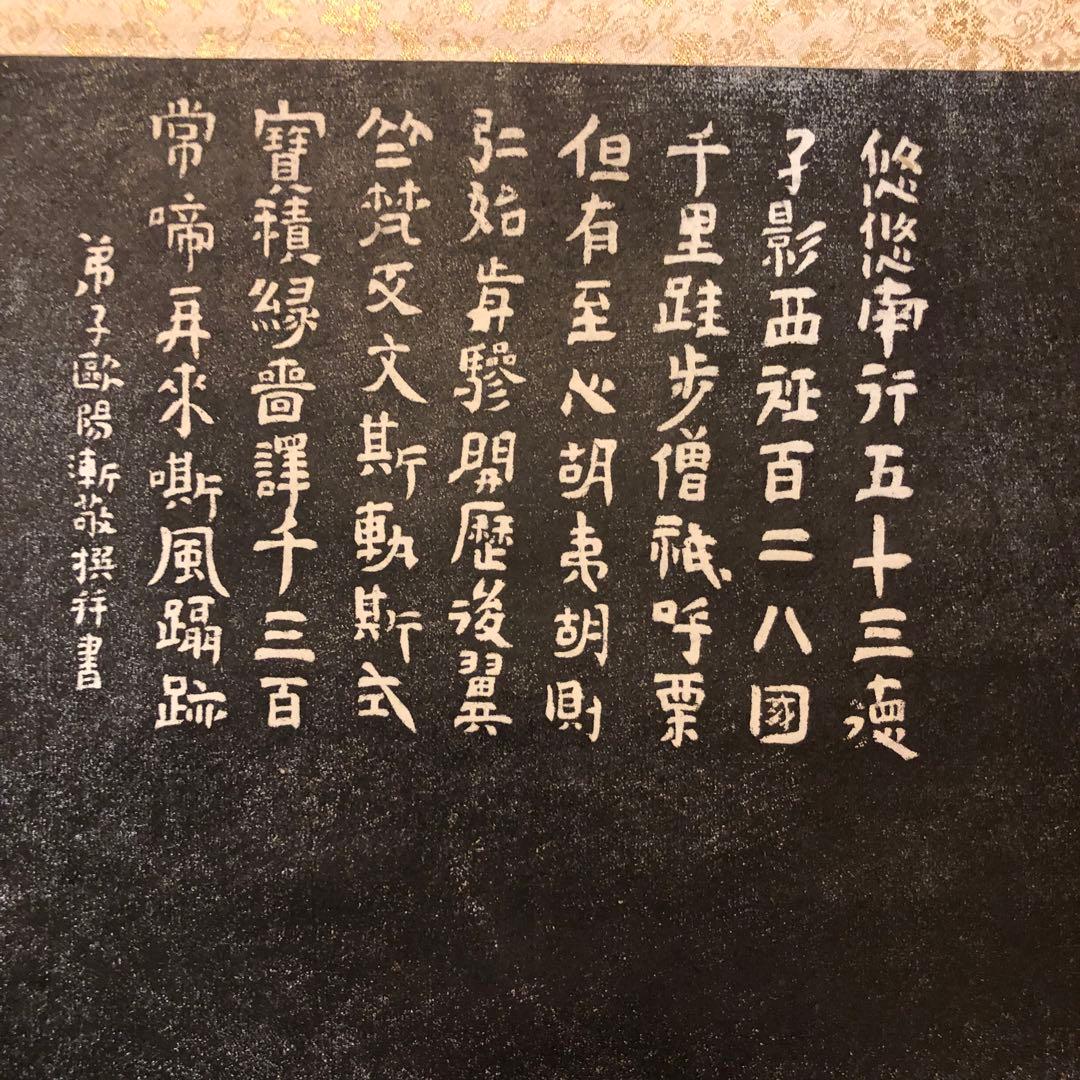 悠悠南行五十三德
孑影西征百二八國
千里跬步僧祇呼栗
但有至心胡夷胡則
弘始歬驂開歷後翼
竺梵文斯軌斯式
寶積緣嗇譯千三百
常啼再來嘶風躡跡
弟子歐陽漸敬撰并書